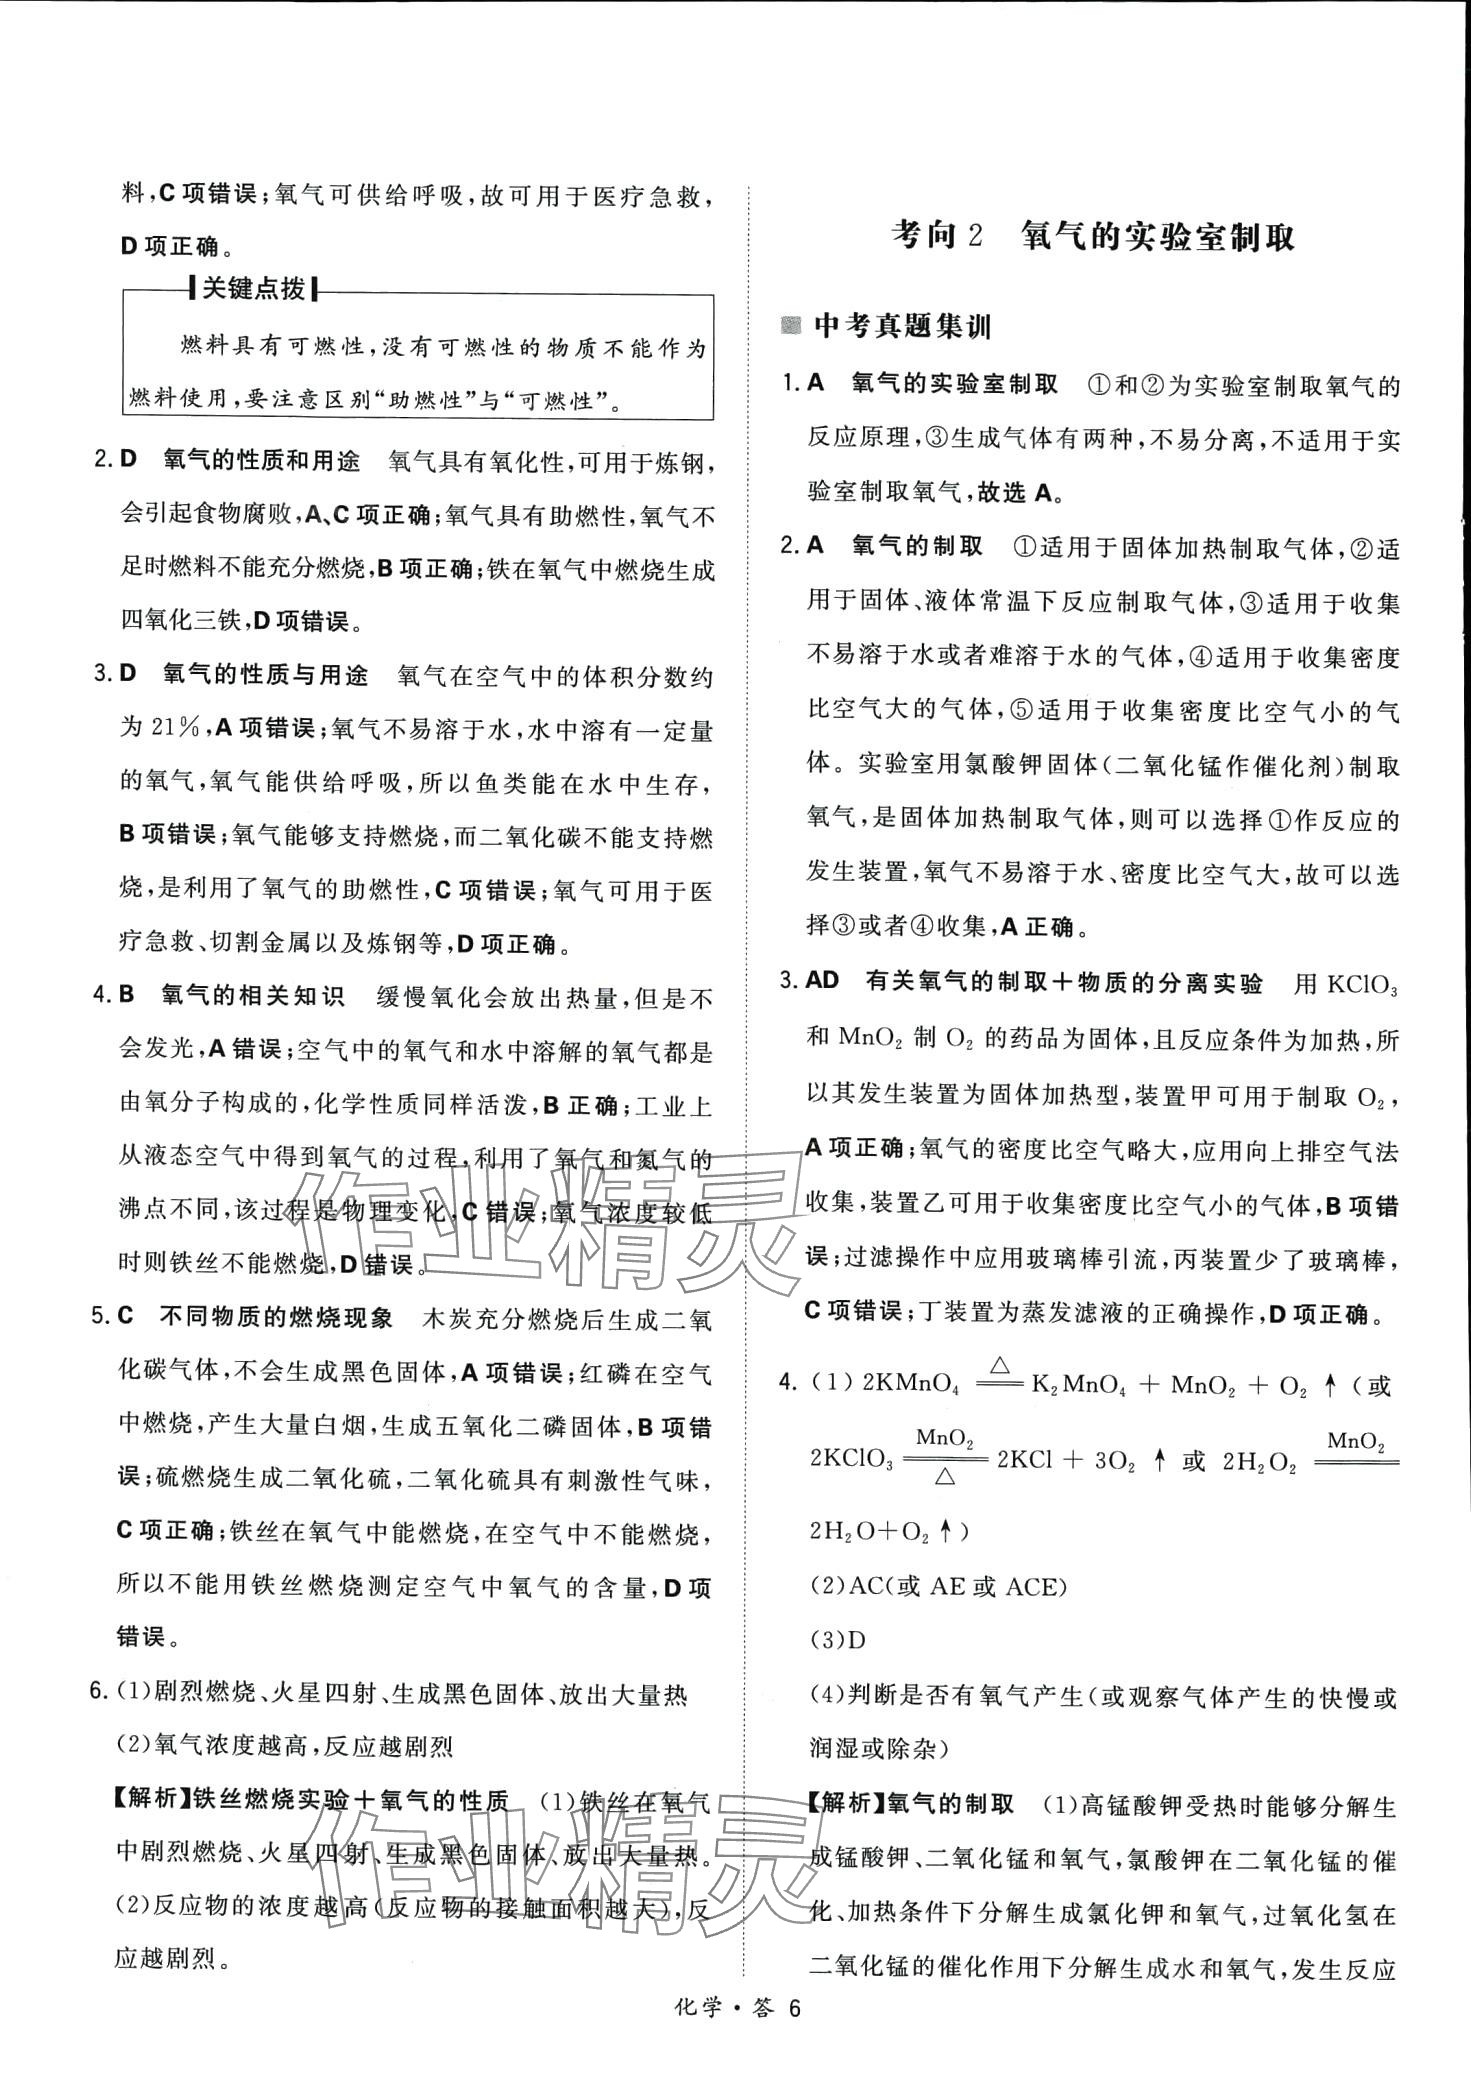 料,C项错误;氧气可供给呼吸,故可用于医疗急救,
D项正确。
关键点拨
燃料具有可燃性,没有可燃性的物质不能作为
燃料使用,要注意区别“助燃性”与“可燃性”。
2. D 氧气的性质和用途 氧气具有氧化性,可用于炼钢,
会引起食物腐败,A、C项正确;氧气具有助燃性,氧气不
足时燃料不能充分燃烧,B项正确;铁在氧气中燃烧生成
四氧化三铁,D项错误。
3. D 氧气的性质与用途 氧气在空气中的体积分数约
为21%,A项错误;氧气不易溶于水,水中溶有一定量
的氧气,氧气能供给呼吸,所以鱼类能在水中生存,
B项错误;氧气能够支持燃烧,而二氧化碳不能支持燃
烧,是利用了氧气的助燃性,C项错误;氧气可用于医
疗急救、切割金属以及炼钢等,D项正确。
4. B 氧气的相关知识 缓慢氧化会放出热量,但是不
会发光,A错误;空气中的氧气和水中溶解的氧气都是
由氧分子构成的,化学性质同样活泼,B正确;工业上
从液态空气中得到氧气的过程,利用了氧气和氮气的
沸点不同,该过程是物理变化,C错误;氧气浓度较低
时则铁丝不能燃烧,D错误。
5. C 不同物质的燃烧现象 木炭充分燃烧后生成二氧
化碳气体,不会生成黑色固体,A项错误;红磷在空气
中燃烧,产生大量白烟,生成五氧化二磷固体,B项错
误;硫燃烧生成二氧化硫,二氧化硫具有刺激性气味,
C项正确;铁丝在氧气中能燃烧,在空气中不能燃烧,
所以不能用铁丝燃烧测定空气中氧气的含量,D项
错误。
6. (1)剧烈燃烧、火星四射、生成黑色固体、放出大量热
(2)氧气浓度越高,反应越剧烈
【解析】铁丝燃烧实验+氧气的性质 (1)铁丝在氧气
中剧烈燃烧、火星四射、生成黑色固体、放出大量热。
(2)反应物的浓度越高(反应物的接触面积越大),反
应越剧烈。
考向2 氧气的实验室制取
中考真题集训
1. A 氧气的实验室制取 ①和②为实验室制取氧气的
反应原理,③生成气体有两种,不易分离,不适用于实
验室制取氧气,故选A。
2. A 氧气的制取 ①适用于固体加热制取气体,②适
用于固体、液体常温下反应制取气体,③适用于收集
不易溶于水或者难溶于水的气体,④适用于收集密度
比空气大的气体,⑤适用于收集密度比空气小的气
体。实验室用氯酸钾固体(二氧化锰作催化剂)制取
氧气,是固体加热制取气体,则可以选择①作反应的
发生装置,氧气不易溶于水、密度比空气大,故可以选
择③或者④收集,A正确。
3. AD 有关氧气的制取+物质的分离实验 用 KClO₃
和 MnO₂ 制 O₂ 的药品为固体,且反应条件为加热,所
以其发生装置为固体加热型,装置甲可用于制取 O₂,
A项正确;氧气的密度比空气略大,应用向上排空气法
收集,装置乙可用于收集密度比空气小的气体,B项错
误;过滤操作中应用玻璃棒引流,丙装置少了玻璃棒,
C项错误;丁装置为蒸发滤液的正确操作,D项正确。
4. (1)2KMnO₄ ═△═ K₂MnO₄ + MnO₂ + O₂ ↑(或
2KClO₃ ═MnO₂/△═ 2KCl + 3O₂ ↑ 或 2H₂O₂ ═MnO₂═
2H₂O+O₂↑)
(2)AC(或 AE或 ACE)
(3)D
(4)判断是否有氧气产生(或观察气体产生的快慢或
润湿或除杂)
【解析】氧气的制取 (1)高锰酸钾受热时能够分解生
成锰酸钾、二氧化锰和氧气,氯酸钾在二氧化锰的催
化、加热条件下分解生成氯化钾和氧气,过氧化氢在
二氧化锰的催化作用下分解生成水和氧气,发生反应
作业精灵
作业精灵
化学·答 6